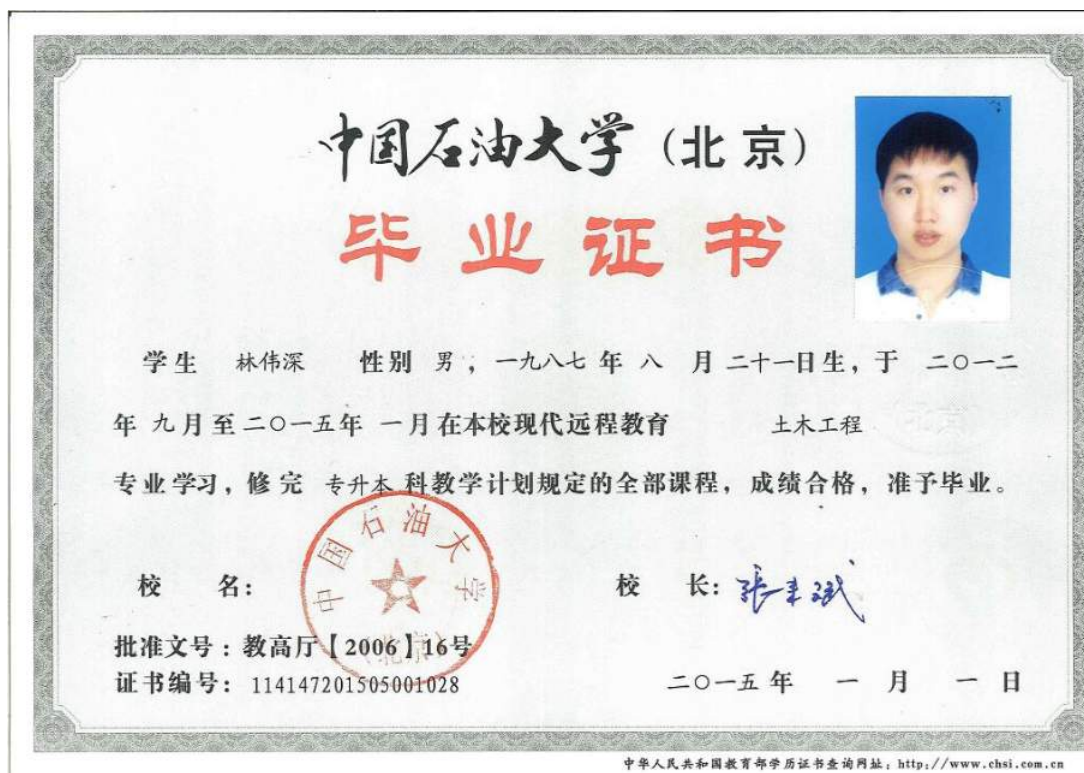 中国石油大学（北京）
毕业证书
学生 林伟深 性别 男，一九八七年 八 月 二十一日生，于 二〇一二
年 九月至二〇一五年 一月在本校现代远程教育 土木工程
专业学习，修完 专升本 科教学计划规定的全部课程，成绩合格，准予毕业。
中国石油大学
（北京）
校 名： 校 长：张来斌
批准文号：教高厅【2006】16号
证书编号：114147201505001028 二〇一五年 一 月 一 日
中华人民共和国教育部学历证书查询网址：http://www.chsi.com.cn